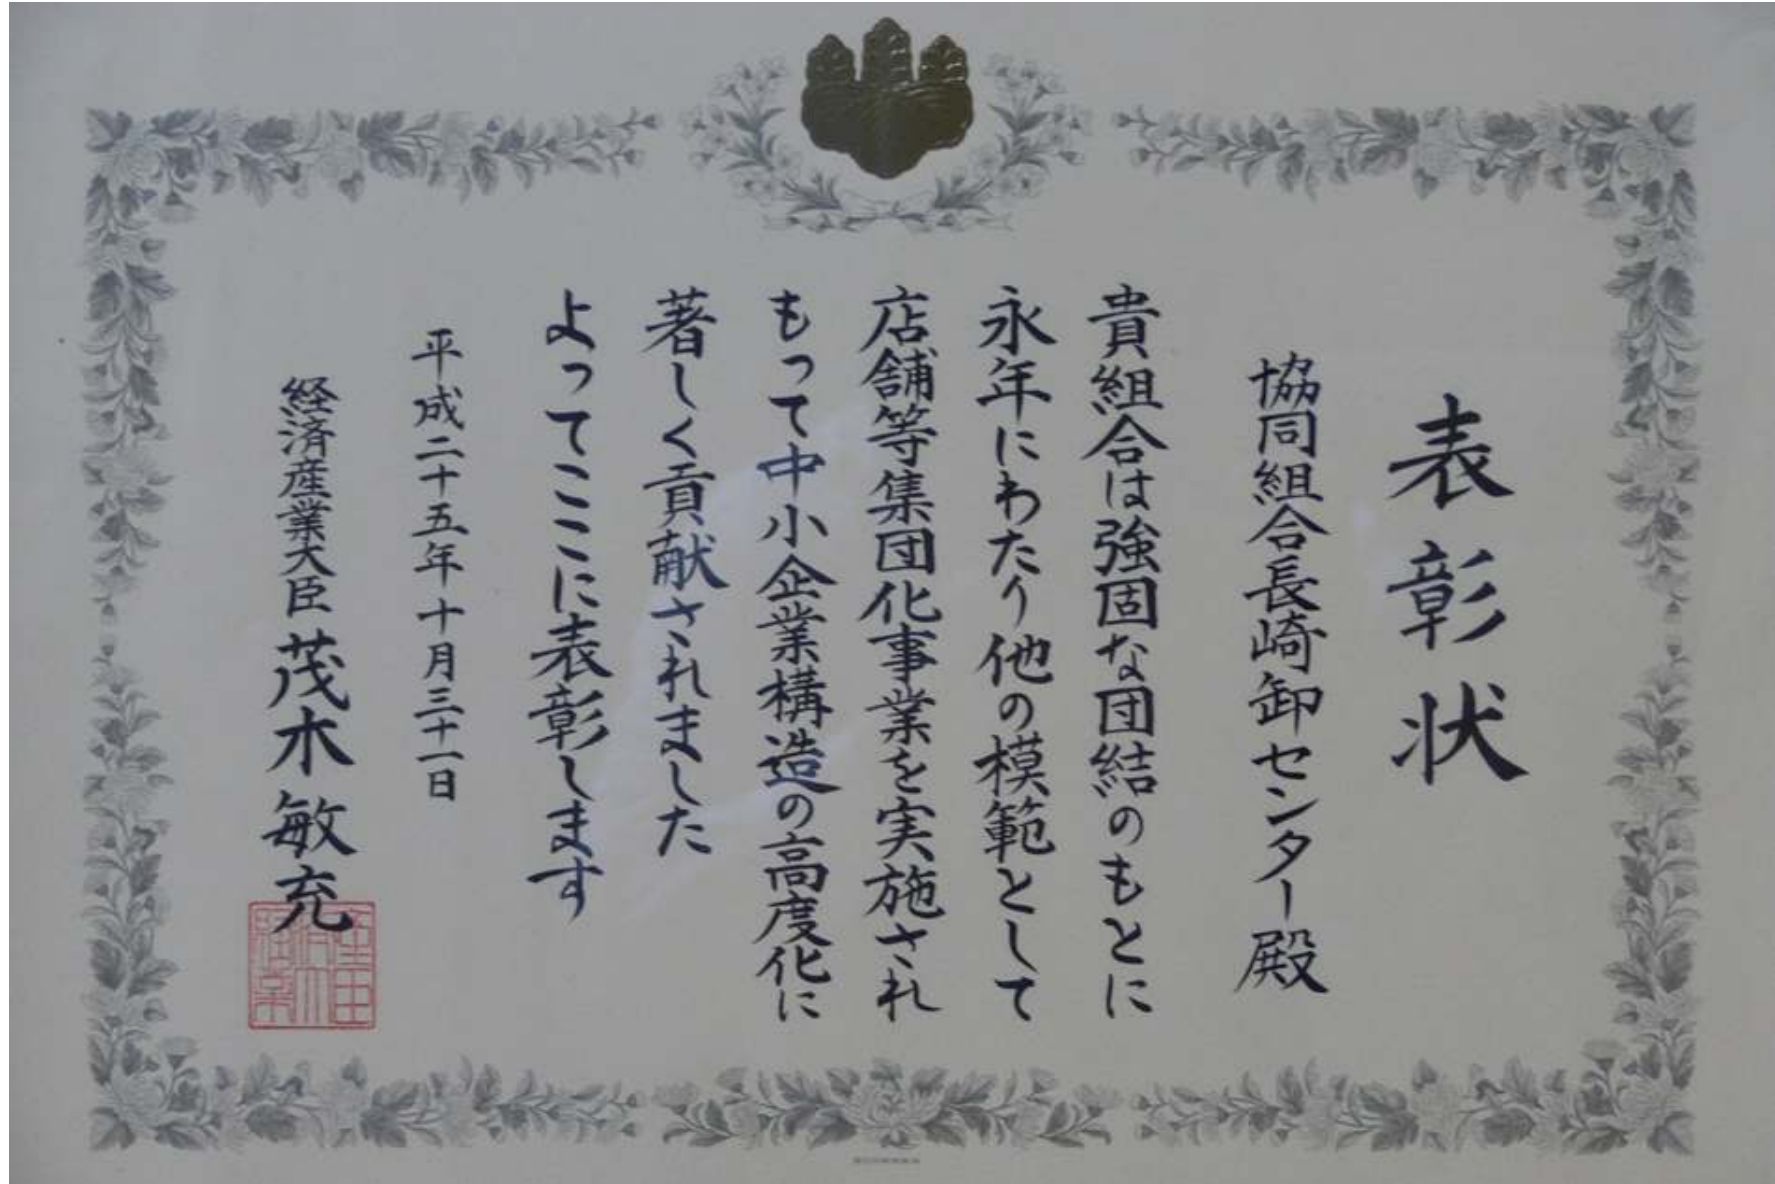 表彰状
協同組合長崎卸センター殿
貴組合は強固な団結のもとに
永年にわたり他の模範として
店舗等集団化事業を実施され
もって中小企業構造の高度化に
著しく貢献されました
よってここに表彰します
平成二十五年十月三十一日
経済産業大臣 茂木敏充